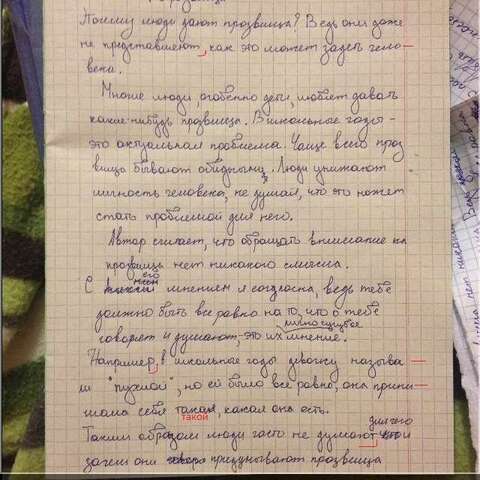 Почему люди дают прозвища? Ведь они даже
не представляют, как это может задеть чело-
века.
Многие люди, особенно дети, любят давать
какие-нибудь прозвища. В школьные годы -
это актуальная проблема. Чаще всего проз
вища бывают обидными. Люди унижают
личность человека, не думая, что это может
стать проблемой для него.
Автор считает, что обращать внимание на
прозвища нет никакого смысла.
С его мнением я согласна, ведь тебе
должно быть все равно на то, что о тебе
говорят и думают, это их личносущное мнение.
Например, в школьные годы девочку называ
ли "пухлой", но ей было все равно, она прини
мала себя такая, какая она есть.
такой
Таким образом люди часто не думают для чего и
зачем они придумывают прозвища